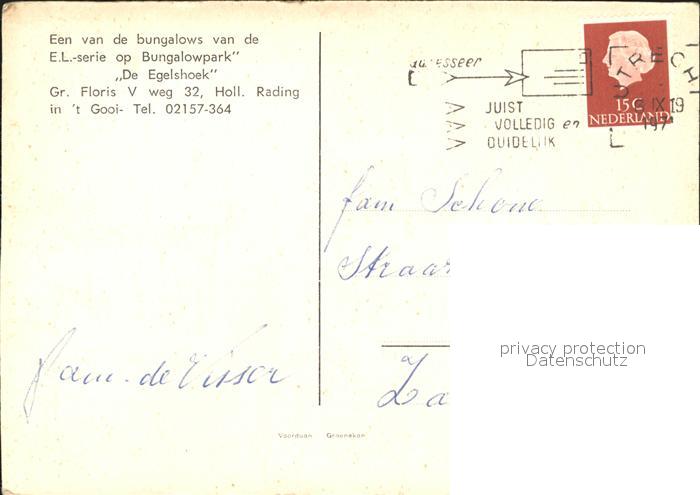 Een van de bungalows van de
E.L.-serie op Bungalowpark"
„De Egelshoek"
Gr. Floris V weg 32, Holl. Rading
in 't Gooi- Tel. 02157-364
adresseer
JUIST
VOLLEDIG en
DUIDELIJK
UTRECHT
IX 19
15 C
NEDERLAND
fam Schone
Straat
Za
fam. de Visser
privacy protection
Datenschutz
Voorduan Groenekan